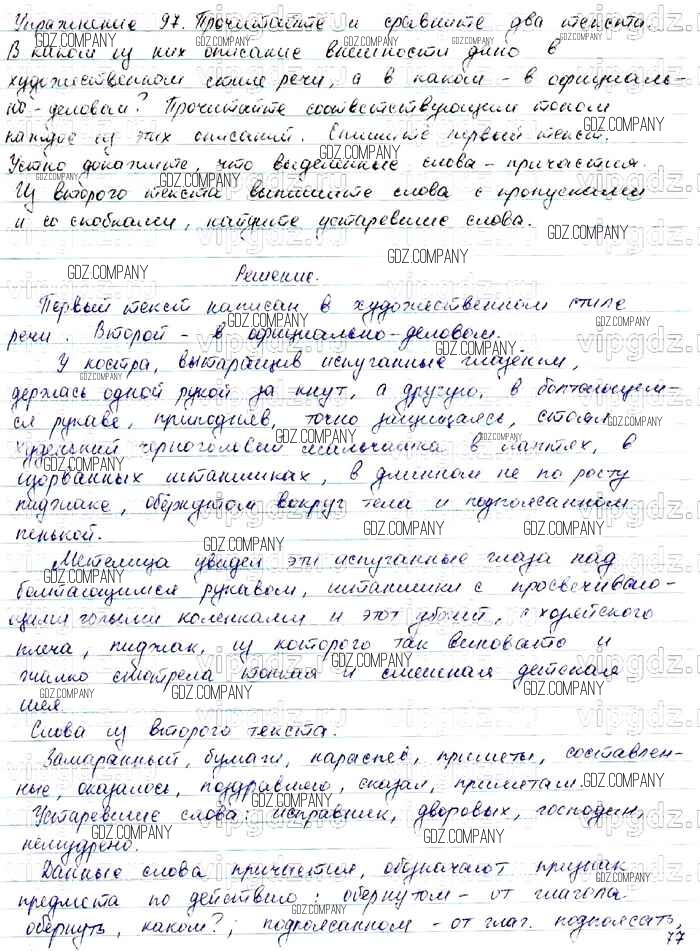 Упражнение 97. Прочитайте и сравните два текста.
В каком из них описание внешности дано в
художественном стиле речи, а в каком - в официаль-
но-деловом? Прочитайте соответствующим тоном
каждое из этих описаний. Спишите первый текст.
Устно докажите, что выделенные слова - причастия.
Из второго текста выпишите слова с пропусками
и со скобками, найдите устаревшие слова.
Решение.
Первый текст написан в художественном стиле
речи. Второй - в официально-деловом.
У костра, вытаращив испуганные глазёнки,
держась одной рукой за кнут, а другую, в болтающем-
ся рукаве, приподняв, точно защищаясь, стоял
худенький черноголовый мальчишка в лаптях, в
изорванных штанишках, в длинном не по росту
пиджаке, обёрнутом вокруг тела и подпоясанном
пенькой.
Метелица увидел эти испуганные глаза над
болтающимся рукавом, штанишки с просвечиваю-
щими голыми коленками и этот убогий, с хозяйского
плеча, пиджак, из которого так виновато и
жалко смотрела тонкая и смешная детская
шея.
Слова из второго текста.
Замаранный, бумаги, нараспев, приметы, составлен-
ные, оказалось, поздравляю, сказал, приметам.
Устаревшие слова: исправник, дворовых, господин,
немудрено.
Данные слова причастия, обозначают признак
предмета по действию: обернутом - от глагола
обернуть, каком?; подпоясанном - от глаг. подпоясать,
77
GDZ.COMPANY
vipgdz.ru